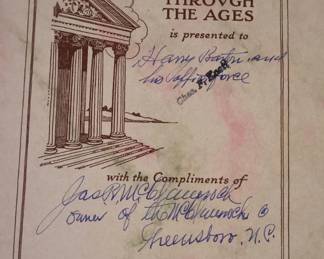 THROVGH
THE AGES
is presented to
Harry Barton and
his office force
Chas.
with the Compliments of
Jas R McClamroch
owner of the McClamroch Co
Greensboro, N.C.